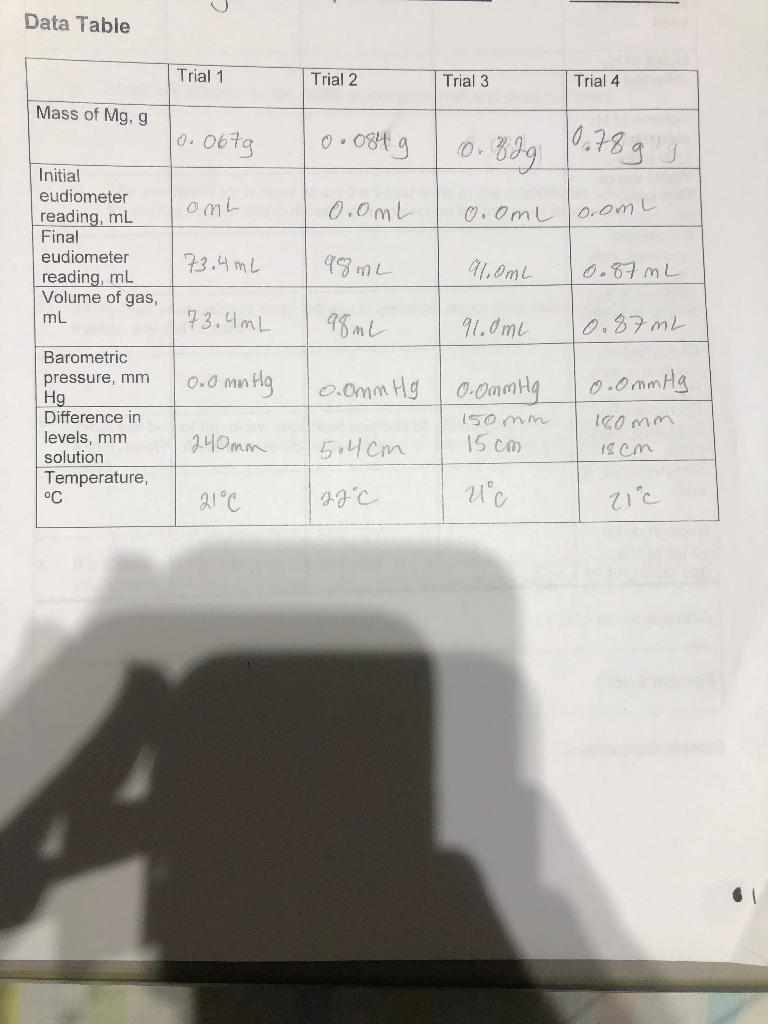 Data Table
Trial 1 Trial 2 Trial 3 Trial 4
Mass of Mg, g
0.067g 0.084g 0.82g 0.78g
Initial
eudiometer
reading, mL
0mL 0.0mL 0.0mL 0.0mL
Final
eudiometer
reading, mL
73.4mL 98mL 91.0mL 0.87mL
Volume of gas,
mL
73.4mL 98mL 91.0mL 0.87mL
Barometric
pressure, mm
Hg
0.0mmHg 0.0mmHg 0.0mmHg 0.0mmHg
Difference in
levels, mm
solution
240mm 5.4cm
150mm
15cm
180mm
18cm
Temperature,
ºC
21°C 22°C 21°C 21°C
1